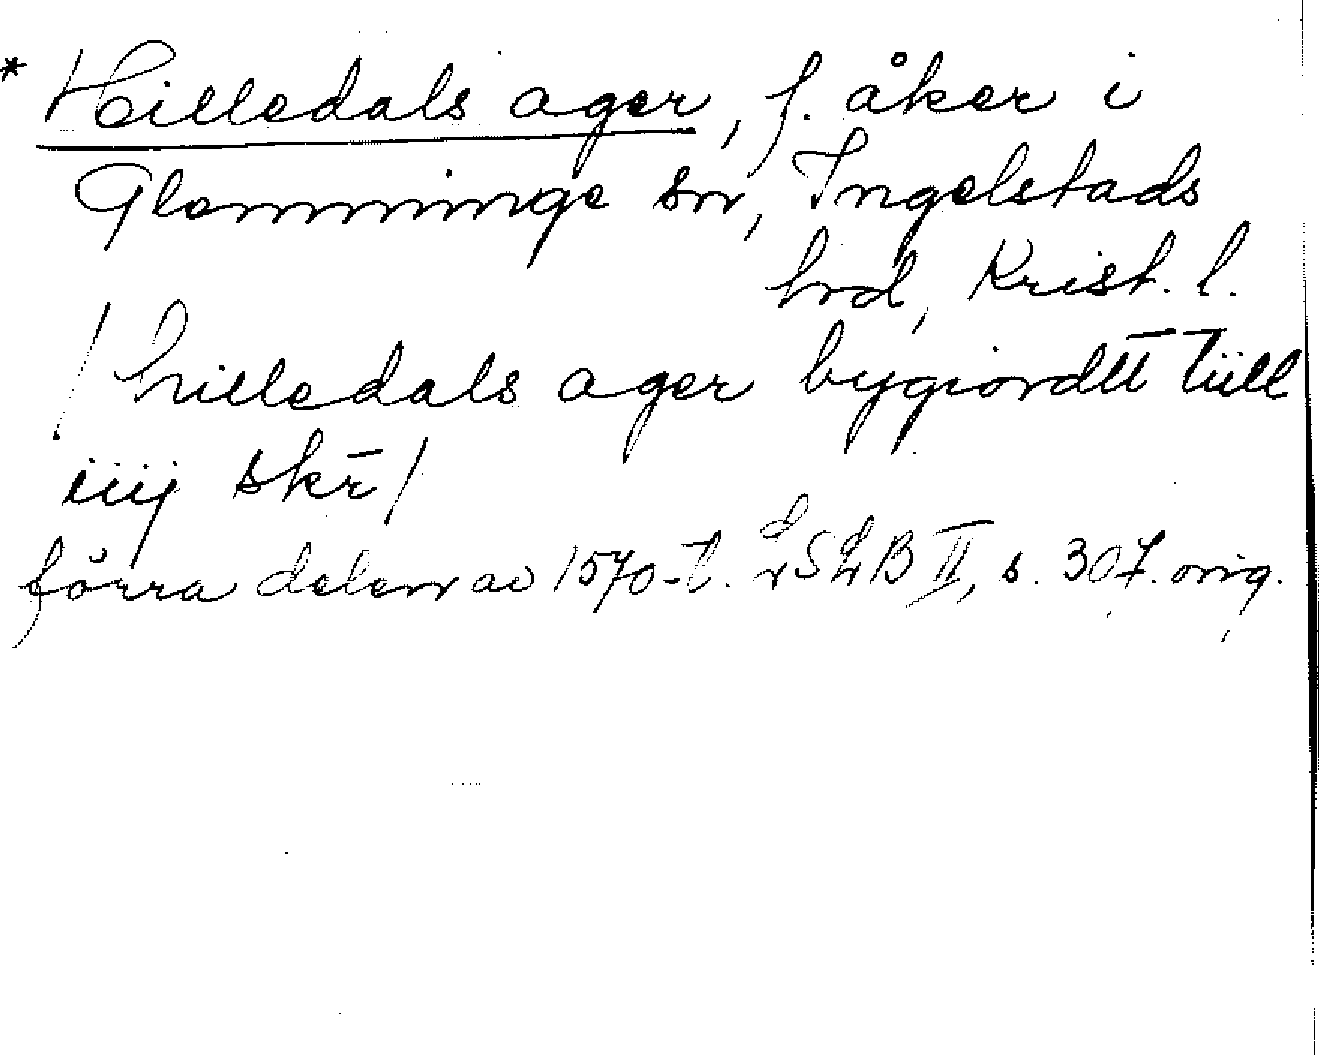 * Hilledals ager, f. åker i
Glemminge sn, Ingelstads
hrd, Krist. l.
/ hilledals ager bygiordtt tiill
iiij skr̄ /
förra delen av 1570-t. LSLB II, s. 307. orig.